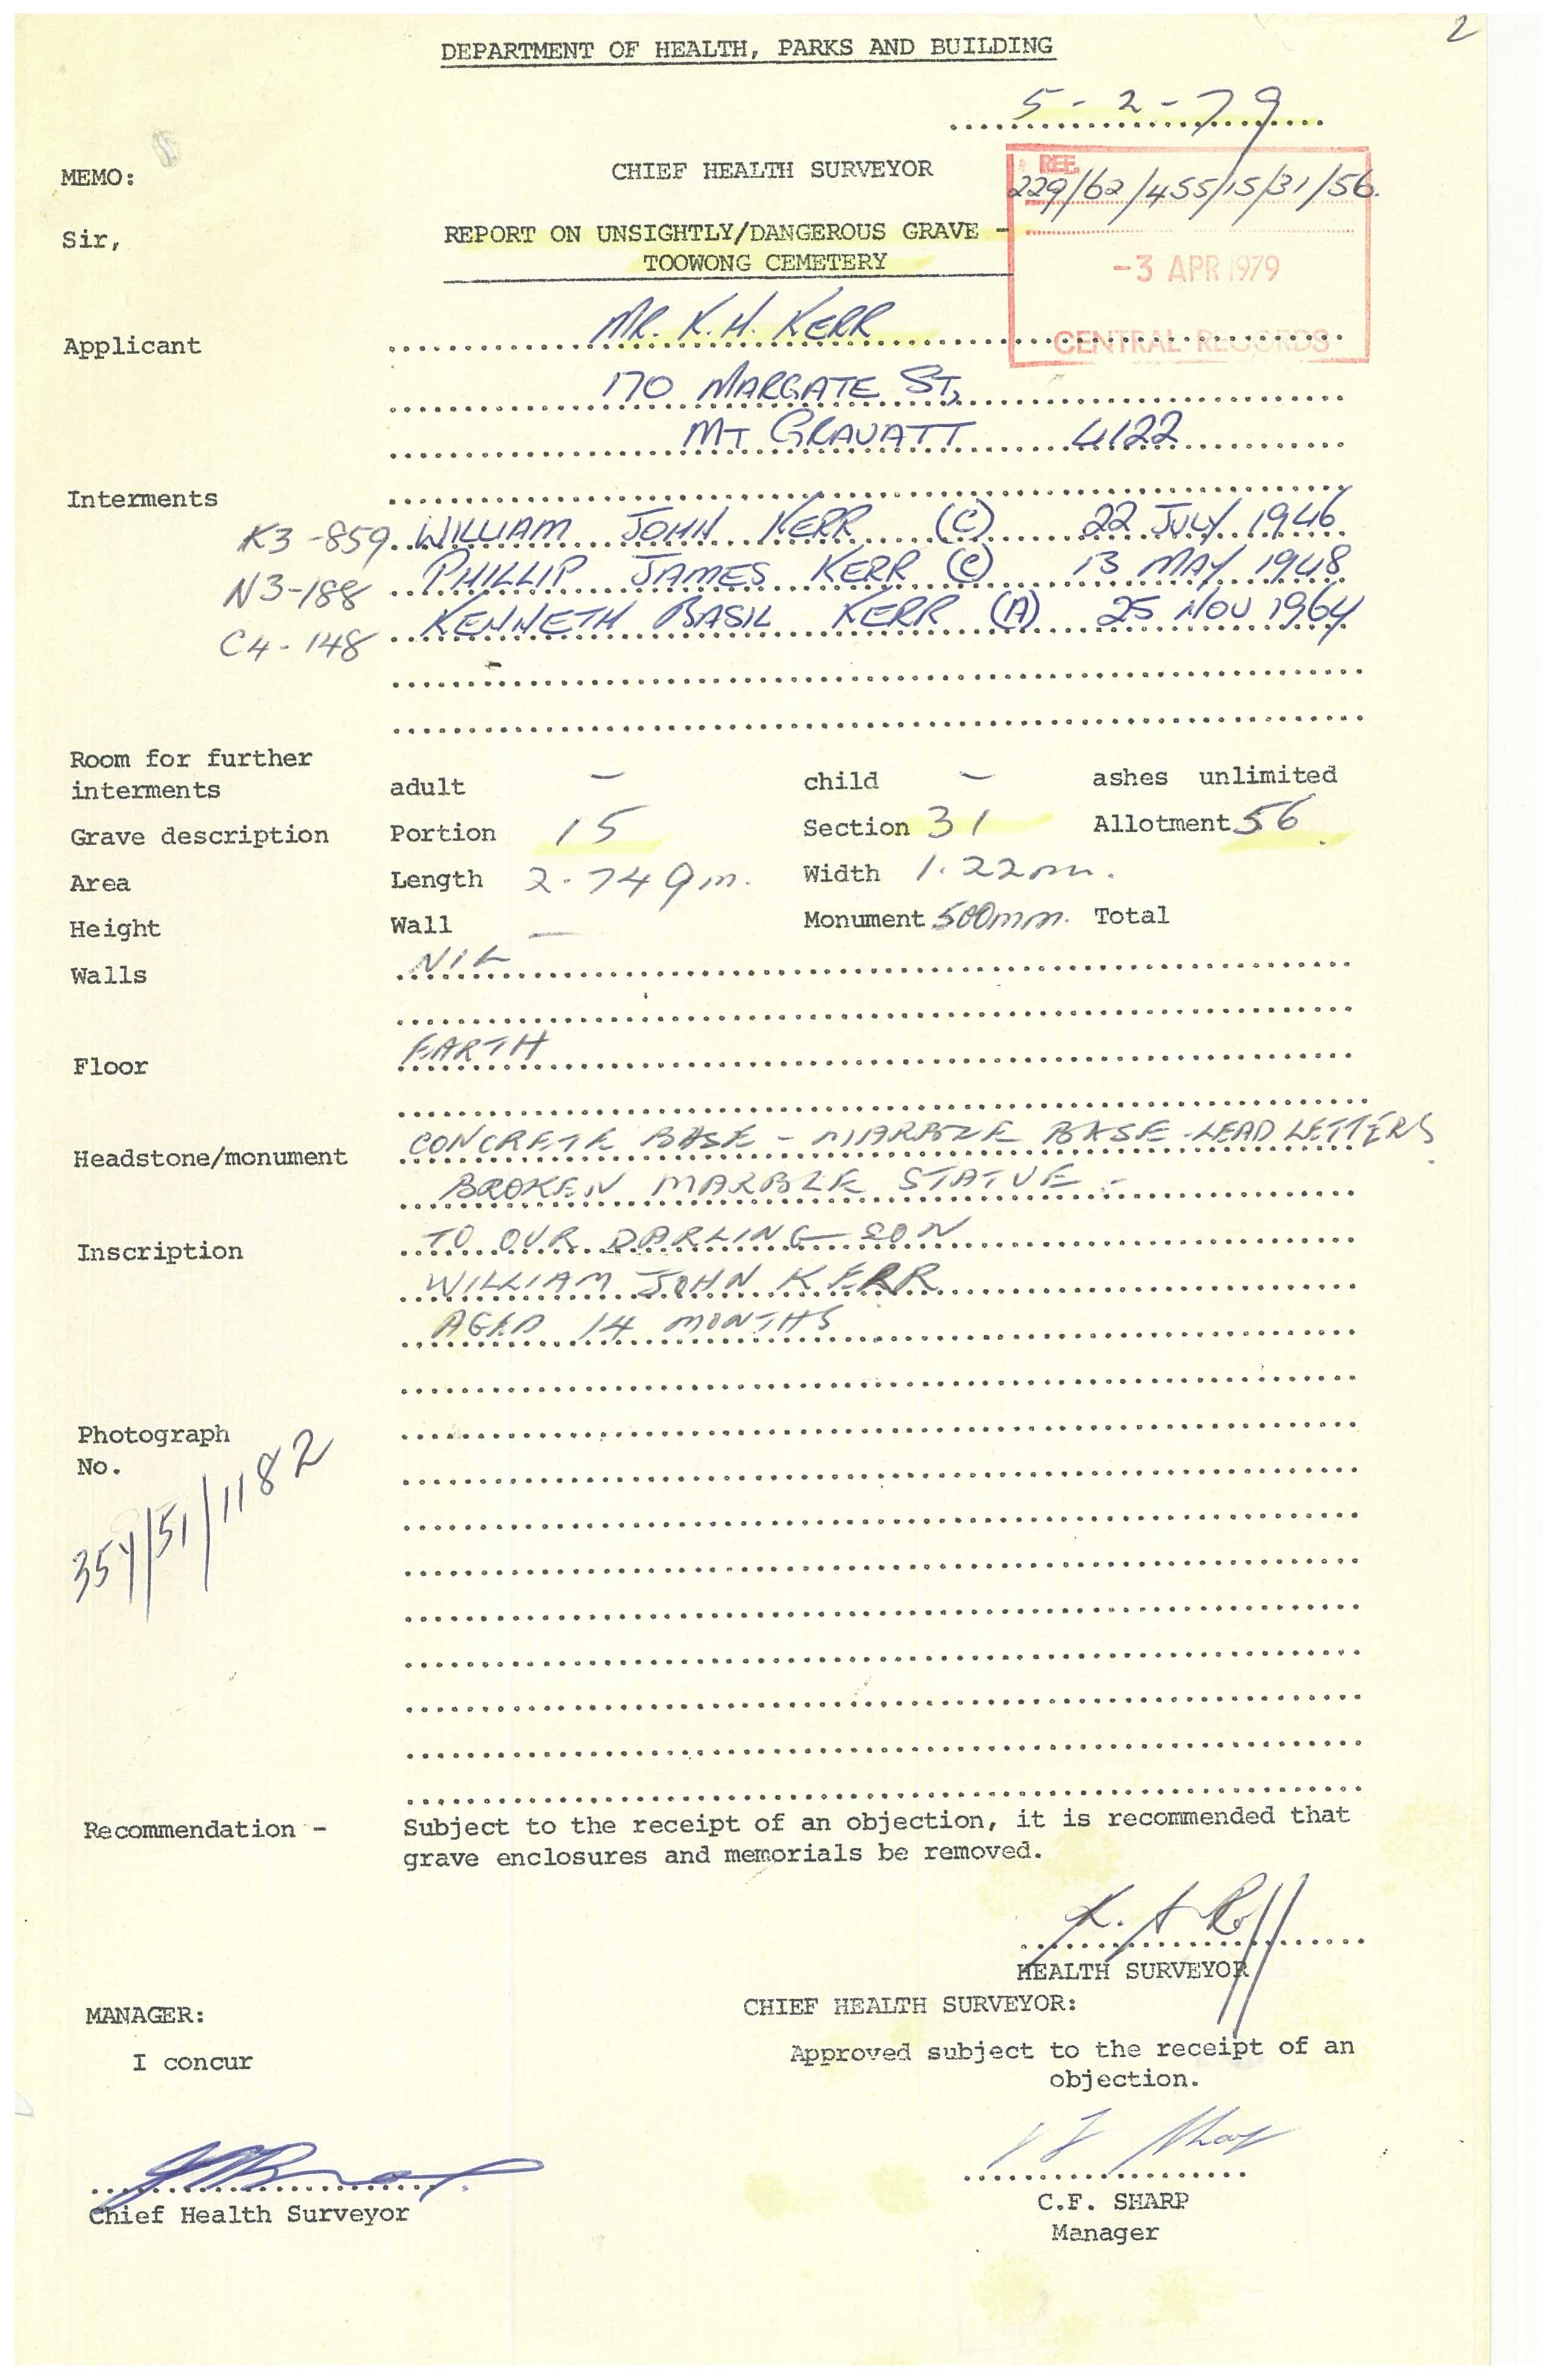 2
DEPARTMENT OF HEALTH, PARKS AND BUILDING
5-2-79
MEMO:
CHIEF HEALTH SURVEYOR
REF.
229/62/455/15/31/56.
Sir,
REPORT ON UNSIGHTLY/DANGEROUS GRAVE -
TOOWONG CEMETERY
-3 APR 1979
CENTRAL RECORDS
Applicant MR. K.H. KERR
170 MARGATE ST,
MT GRAVATT 4122
Interments
K3-859 WILLIAM JOHN KERR (C) 22 JULY 1946
N3-188 PHILLIP JAMES KERR (C) 13 MAY 1948
C4-148 KENNETH BASIL KERR (A) 25 NOV 1964
Room for further
interments adult - child - ashes unlimited
Grave description Portion 15 Section 31 Allotment 56
Area Length 2.749m. Width 1.22m.
Height Wall - Monument 500mm. Total
Walls NIL
Floor EARTH
Headstone/monument CONCRETE BASE - MARBLE BASE - LEAD LETTERS
BROKEN MARBLE STATUE -
Inscription TO OUR DARLING SON
WILLIAM JOHN KERR
AGED 14 MONTHS
Photograph
No.
354/51/1182
Recommendation - Subject to the receipt of an objection, it is recommended that
grave enclosures and memorials be removed.
HEALTH SURVEYOR
MANAGER:
CHIEF HEALTH SURVEYOR:
I concur
Approved subject to the receipt of an
objection.
Chief Health Surveyor
C.F. SHARP
Manager